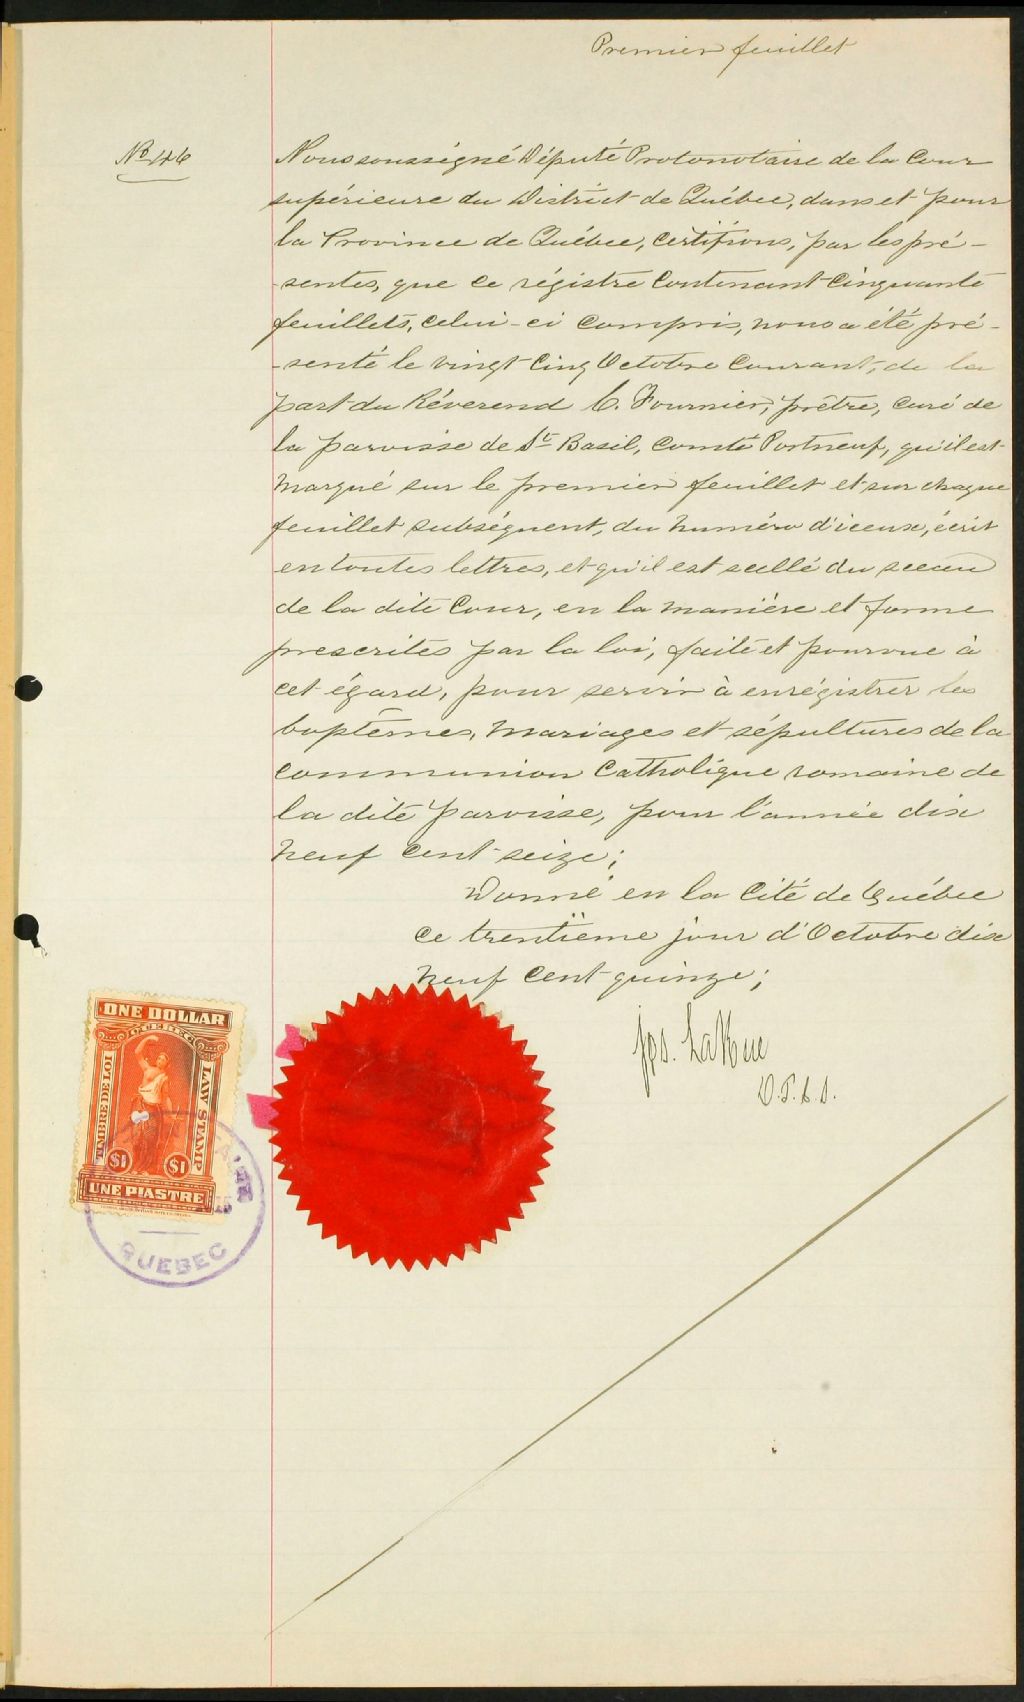 Premier feuillet
No 46
Nous soussigné Député Protonotaire de la Cour
supérieure du District de Québec, dans et pour
la Province de Québec, certifions, par les pré-
-sentes, que ce régistre contenant cinquante
feuillets, celui-ci compris, nous a été pré-
-senté le vingt cinq Octobre courant, de la
part du Réverend C. Fournier, prêtre, curé de
la paroisse de St Basil, comté Portneuf, qu'il est
marqué sur le premier feuillet et sur chaque
feuillet subséquent, du numéro d'iceux, écrit
en toutes lettres, et qu'il est scellé du sceau
de la dite Cour, en la manière et forme
prescrites par la loi, faite et pourvue à
cet égard, pour servir à enrégistrer les
baptêmes, mariages et sépultures de la
communion Catholique romaine de
la dite paroisse, pour l'année dix
neuf cent seize;
Donné en la Cité de Québec
ce trentième jour d'Octobre dix
neuf cent quinze;
Jos. LaRue
D.P.C.S.
ONE DOLLAR
QUEBEC
TIMBRE DE LOI
LAW STAMP
$1 $1
UNE PIASTRE
QUEBEC